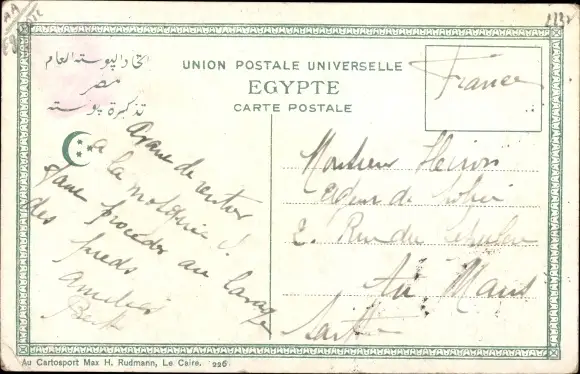 اتحاد البوسته العام
مصر
تذكرة بوسته
UNION POSTALE UNIVERSELLE
EGYPTE
CARTE POSTALE
France
Avant de rentrer
a la mosquée il
faut procéder au lavage
des pieds
amitiés
Monsieur
agent de
2. Rue du
Au Mans
Sarthe
Au Cartosport Max H. Rudmann, Le Caire. 226.